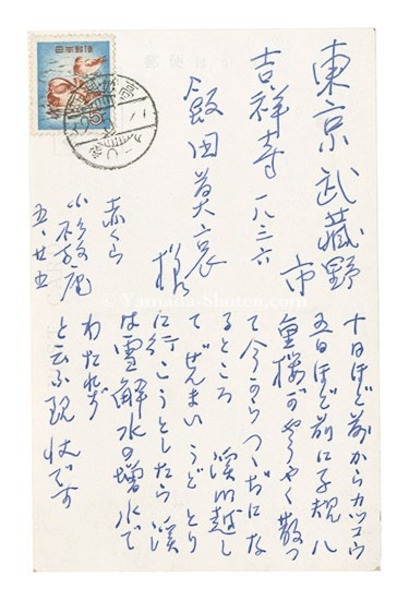 日本郵便
郵便はがき
東京 武藏野
市
吉祥寺 一八三六
飯田莫哀
様
赤くら
小杉放庵
五、廿五
十日ほど前からカッコウ
五日ほど前に子規 八
重桜がやうやく散つ
て今からつゝぢにな
るところ 渓川越し
て ぜんまい うど とり
に行こうとしたら 渓
は雪解水の増水で
わたれず
と云ふ現状です
© Yamada-Shoten.com